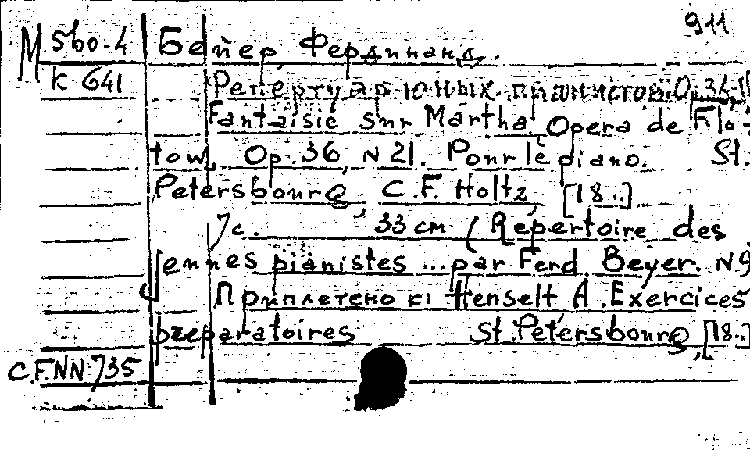 911
М 560-4 Бейер Фердинанд.
К 641 Репертуар юных пианистов. Op. 34-
Fantaisie sur Martha Opera de Flo-
tow, Op. 36, N 21. Pour le piano. St.
Petersbourg, C.F. Holtz, [18..]
7 с. 33 см (Repertoire des
jeunes pianistes ... par Ferd. Beyer. N 9
Приплетено к: Henselt, A. Exercices
preparatoires St. Petersbourg, [18..]
C.F.NN 735